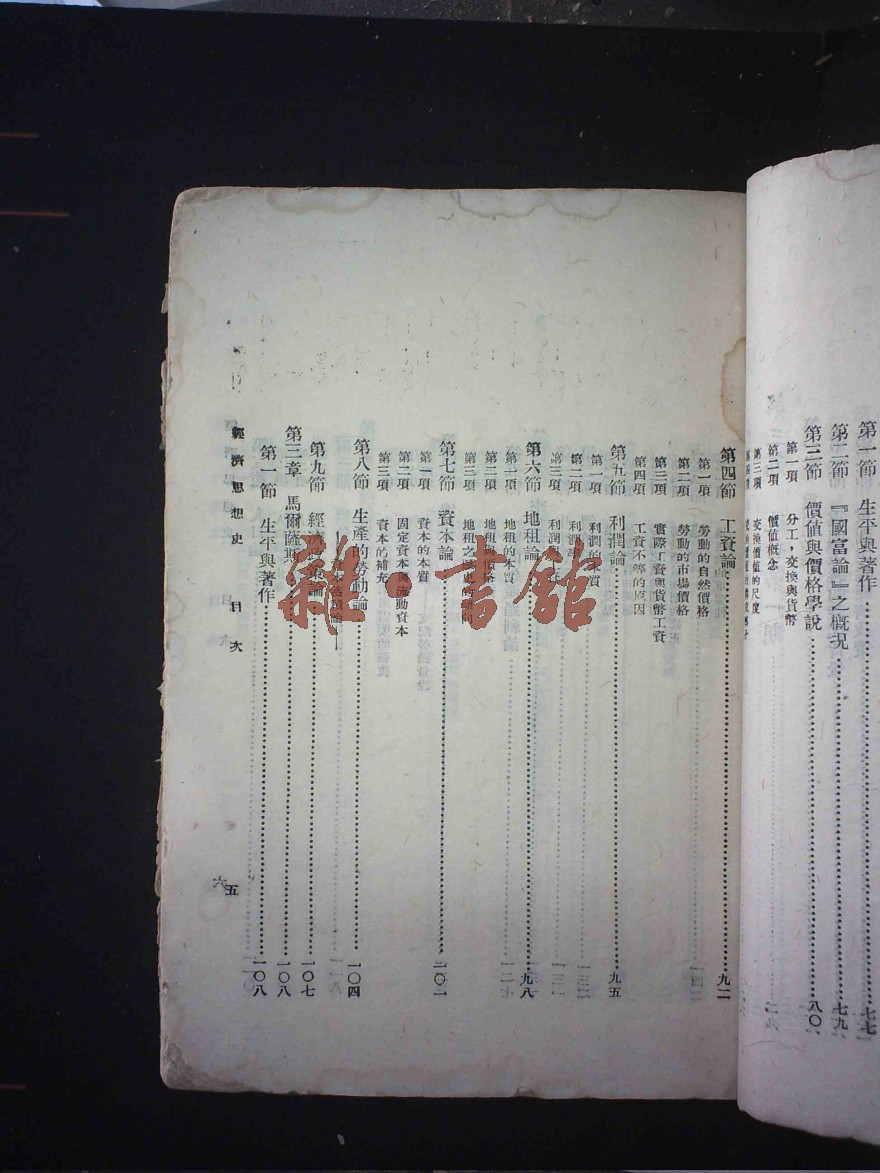 第一節 生平與著作……七七
第二節 『國富論』之概況……七九
第三節 價值與價格學說……八〇
第一項 分工，交換與貨幣
第二項 價值概念
第三項 交換價值的尺度
第四節 工資論……九二
第一項 勞動的自然價格
第二項 勞動的市場價格
第三項 實際工資與貨幣工資
第四項 工資不等的原因
第五節 利潤論……九五
第一項 利潤的 質
第二項 利潤
第三項 利潤
第六節 地租論……九八
第一項 地租的本質
第二項 地租與價格
第三項 地租之歷史的傾向
第七節 資本論……一〇一
第一項 資本的本質
第二項 固定資本與流動資本
第三項 資本的補充
第八節 生產的勞動論……一〇四
第九節 經濟政策論……一〇七
第三章 馬爾薩斯……一〇八
第一節 生平與著作……一〇八
經濟思想史 目次
五
雜·書館